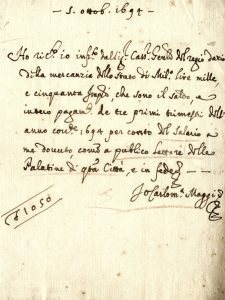 5. ottob. 1694
Ho ric.to io inf.to dall'Ill. Cass. Gen.le del regio dazio
della mercanzia dello Stato di Mil.o lire mille
e cinquanta Imp.li, che sono il saldo, a
intero pagam.to de tre primi trimestri dell'
anno corr.te 1694 per conto del Salario a
me dovuto come a publico Lettore delle
Palatine di q.ta Città, e in fede
Io Carlo M.a Maggi
£ 1050